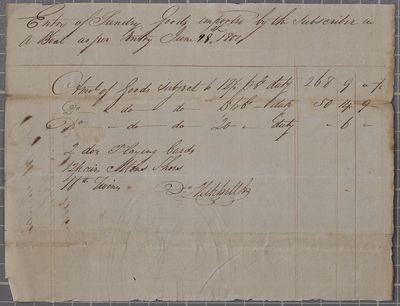 Entry of Sundry Goods imported by the Subscriber in
a Boat as per Entry June 28th 1801
Amt of Goods subject to 12½ pCt duty 268 9
Do - do - do 15 pCt - duty 50 14 9
Do - do - do 20 - duty - 6 -
2 doz Playing Cards
12 pair Mens Shoes
Twine